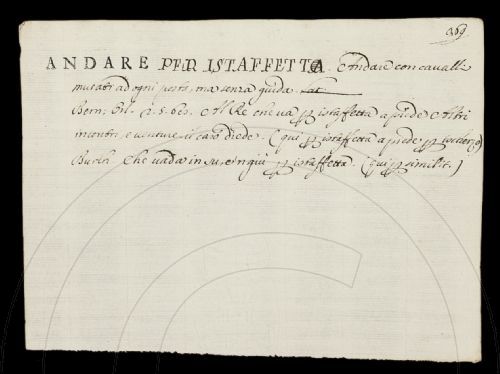 369
ANDARE PER ISTAFFETTA. Andare con cavalli
mutati ad ogni posta, ma senza guida. Lat.
Bern: Orl. 2. 5. 60. Al Re che va p istaffetta a piede Altri
incontri, e venture il caso diede. (qui p istaffetta a piede p
Burch. Che vada in su, e in giu p istaffetta. (qui p similit.)